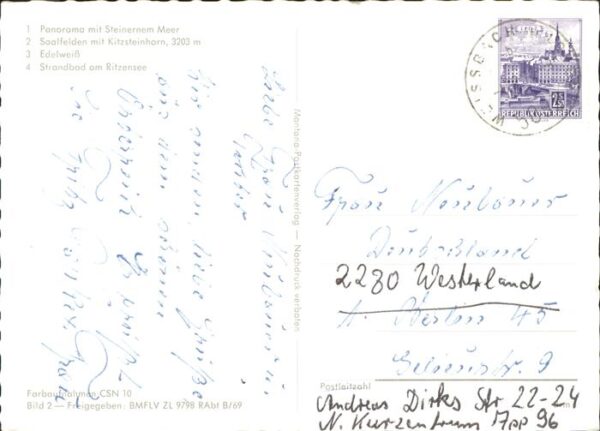 1 Panorama mit Steinernem Meer
2 Saalfelden mit Kitzsteinhorn, 3203 m
3 Edelweiß
4 Strandbad am Ritzensee
WEISSBACH
2S
REPUBLIK ÖSTERREICH
Liebe Frau Neubauer u.
Die senden liebe Grüße
aus dem schönen
Österreich
Fritz
Frau
Montana Postkartenverlag — Nachdruck verboten
Frau Neubauer
Deutschland
2280 Westerland
1. Berlin 45
9
Postleitzahl
Andreas Dirks Str 22-24
N. Kurzentrum App 96
Farbaufnahmen CSN 10
Bild 2 — Freigegeben: BMFLV ZL 9798 RAbt B/69